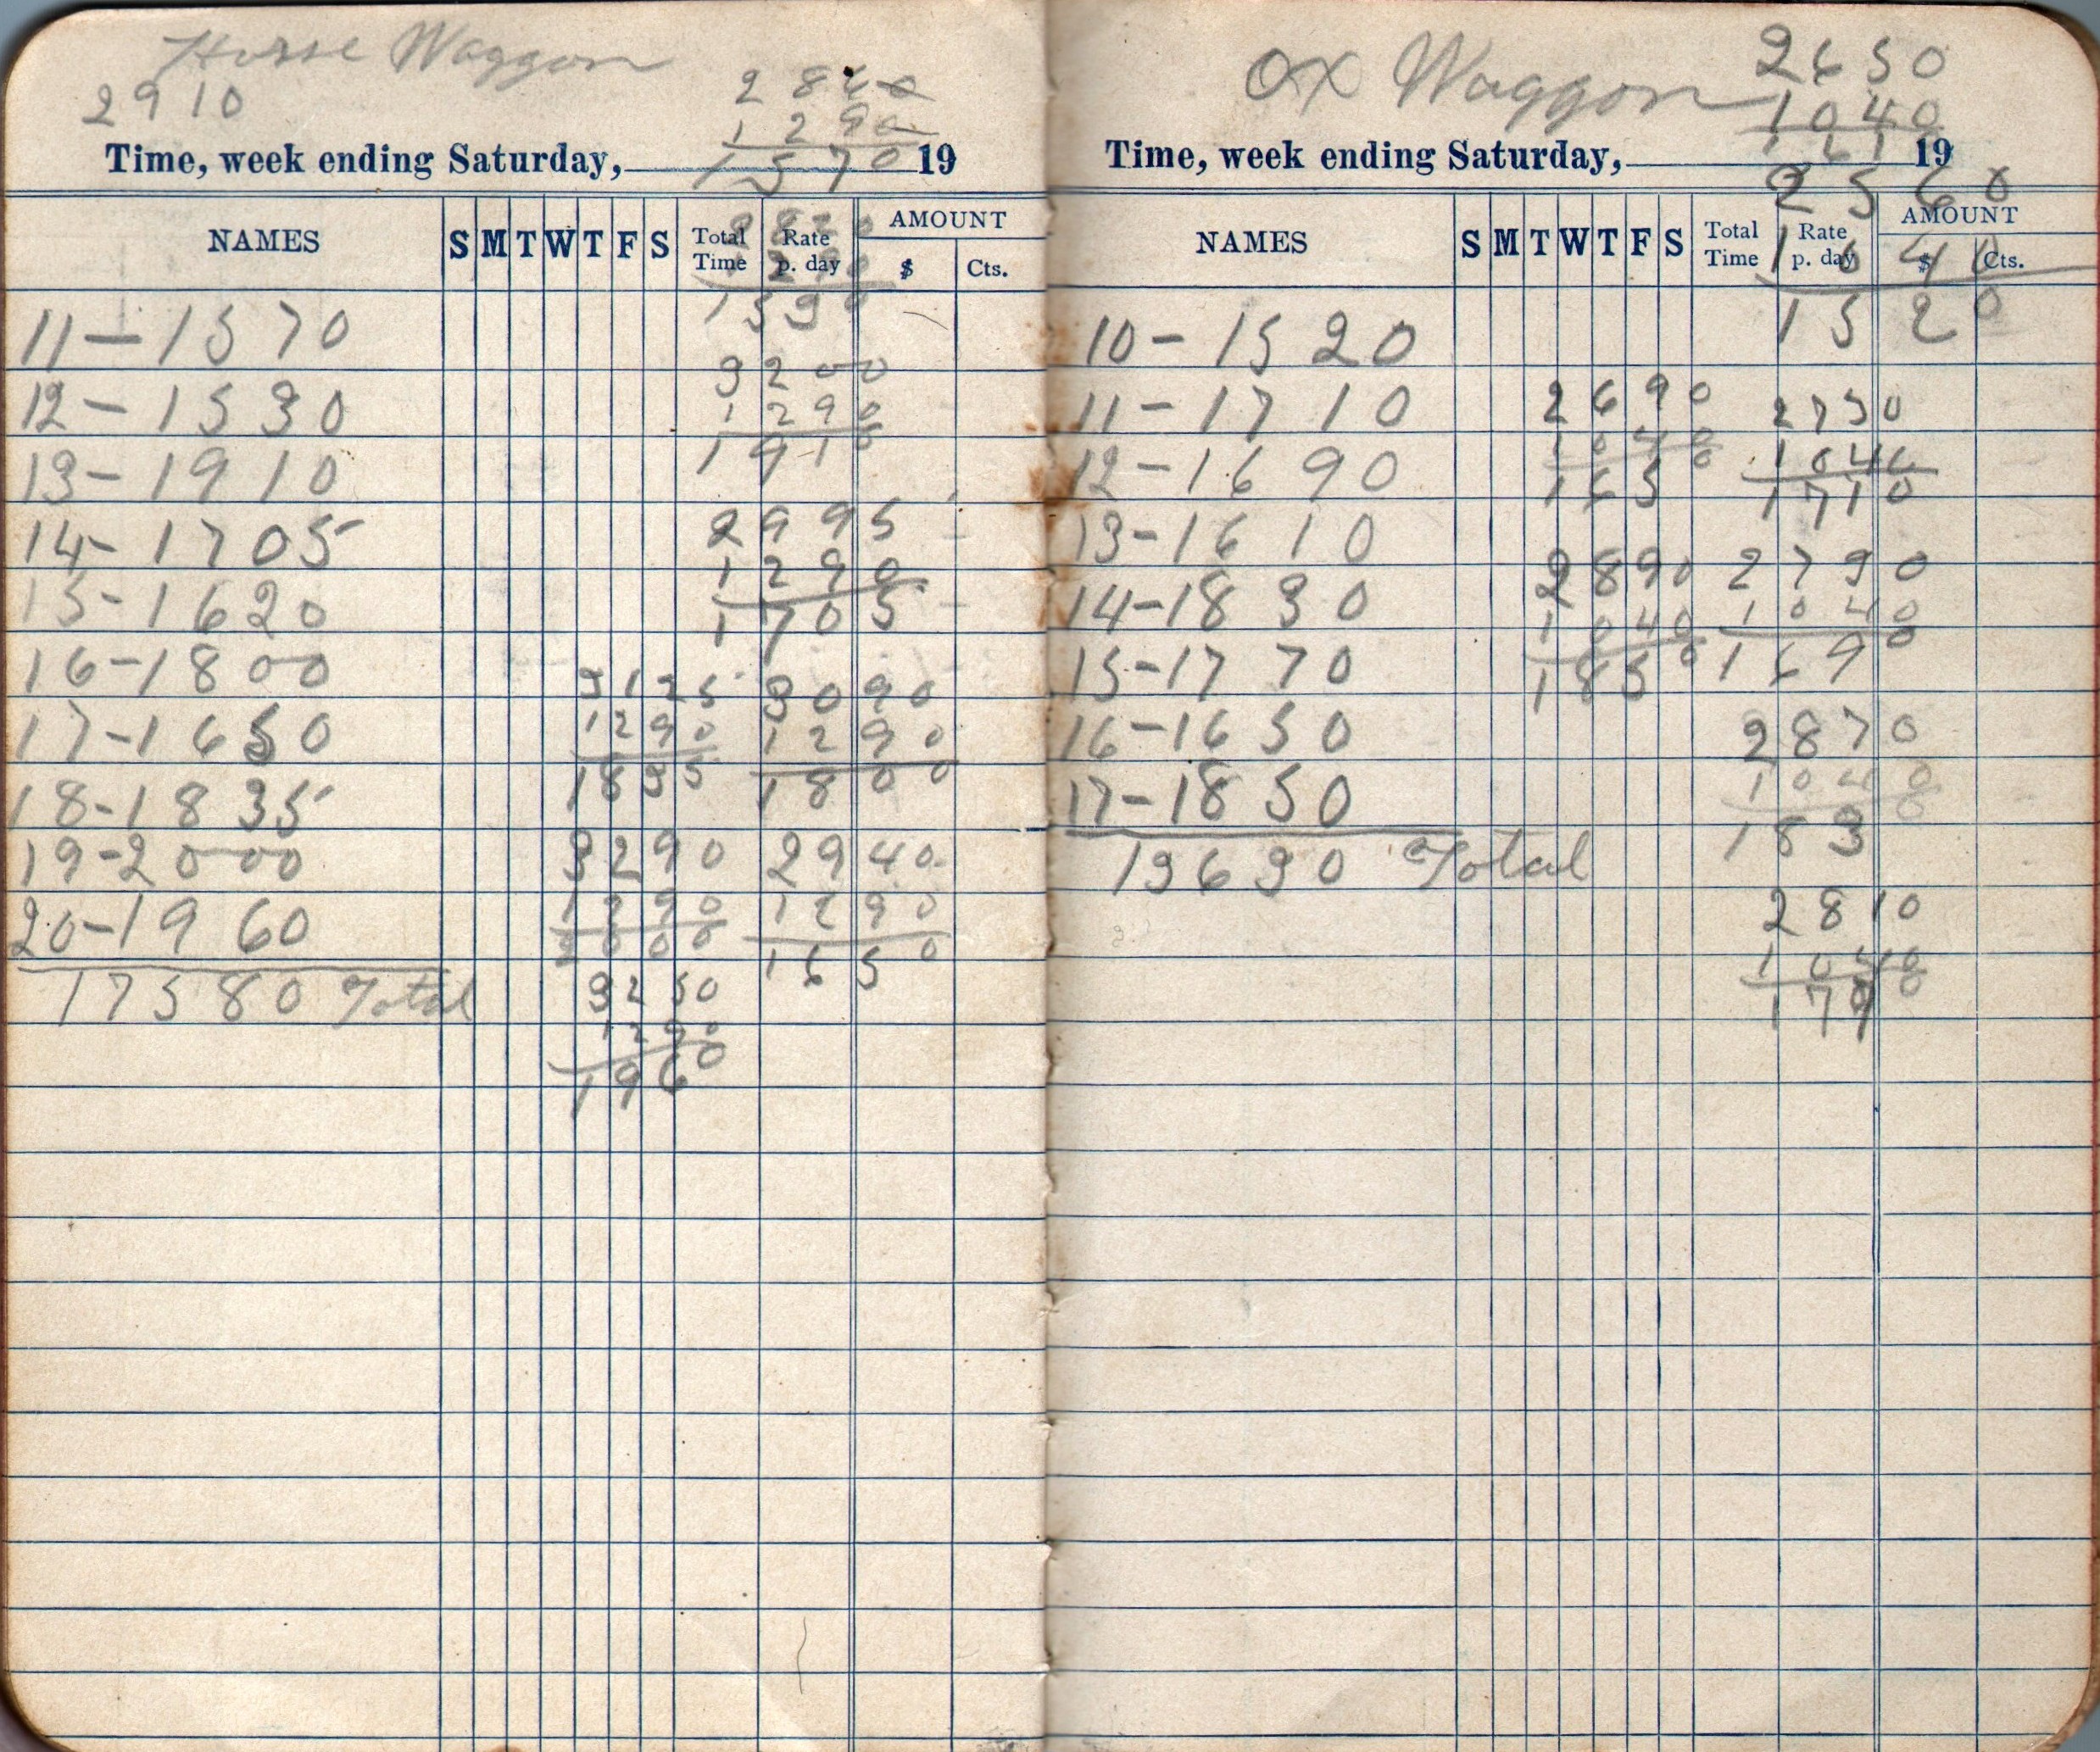 Horse Waggon
2910
2860
1290
1570
Time, week ending Saturday, 19
NAMES S M T W T F S Total Time Rate p. day AMOUNT $ Cts.
2820
1290
1530
11 – 1570
12 – 1530
13 – 1910
14 – 1705
15 – 1620
16 – 1800
17 – 1650
18 – 1835
19 – 2000
20 – 1960
17580 Total
3200
1290
1910
2995
1290
1705
3125
1290
1835
3090
1290
1800
3290
1290
2000
2940
1290
1650
3250
1290
1960
Ox Waggon
2650
1040
161
Time, week ending Saturday, 19
NAMES S M T W T F S Total Time Rate p. day AMOUNT $ Cts.
2560
1040
1520
10 – 1520
11 – 1710
12 – 1690
13 – 1610
14 – 1830
15 – 1770
16 – 1650
17 – 1850
13630 Total
2690
1040
1650
2750
1040
1710
2890
1040
1850
2730
1040
1690
2870
1040
1830
2810
1040
1770